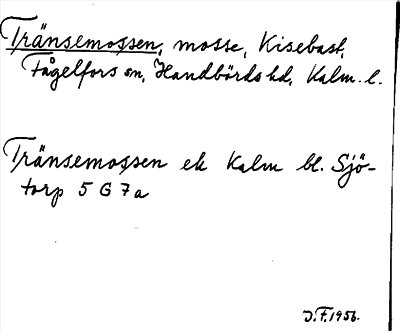 Tränsemossen, mosse, Kisebast,
Fågelfors sn, Handbörds hd, Kalm. l.
Tränsemossen ek Kalm bl. Sjö-
torp 5 G 7 a
J.F. 1956.